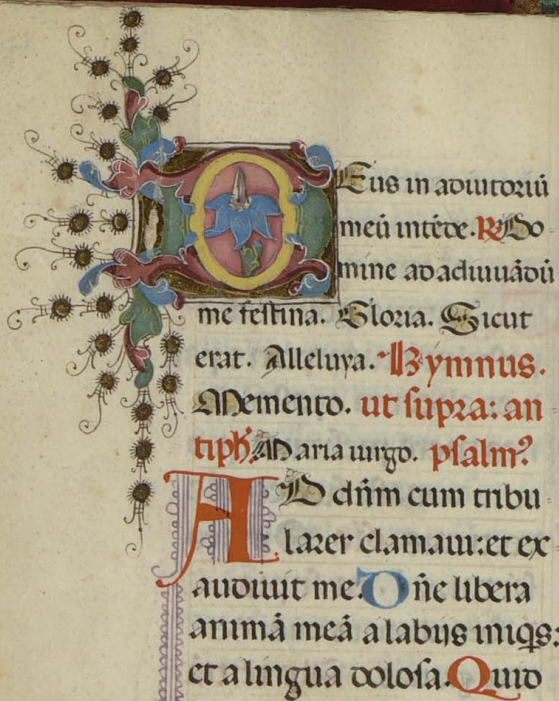 Deus in adiutoriū
meū intēde. R Do
mine ad adiuuādū
me festina. Gloria. Sicut
erat. Alleluya. Hymnus.
Memento. ut supra: an
tiph. Maria uirgo. psalm⁹
AD dn̄m cum tribu
larer clamaui: et ex
audiuit me. Dn̄e libera
animā meā a labijs iniqis:
et a lingua dolosa. Quid